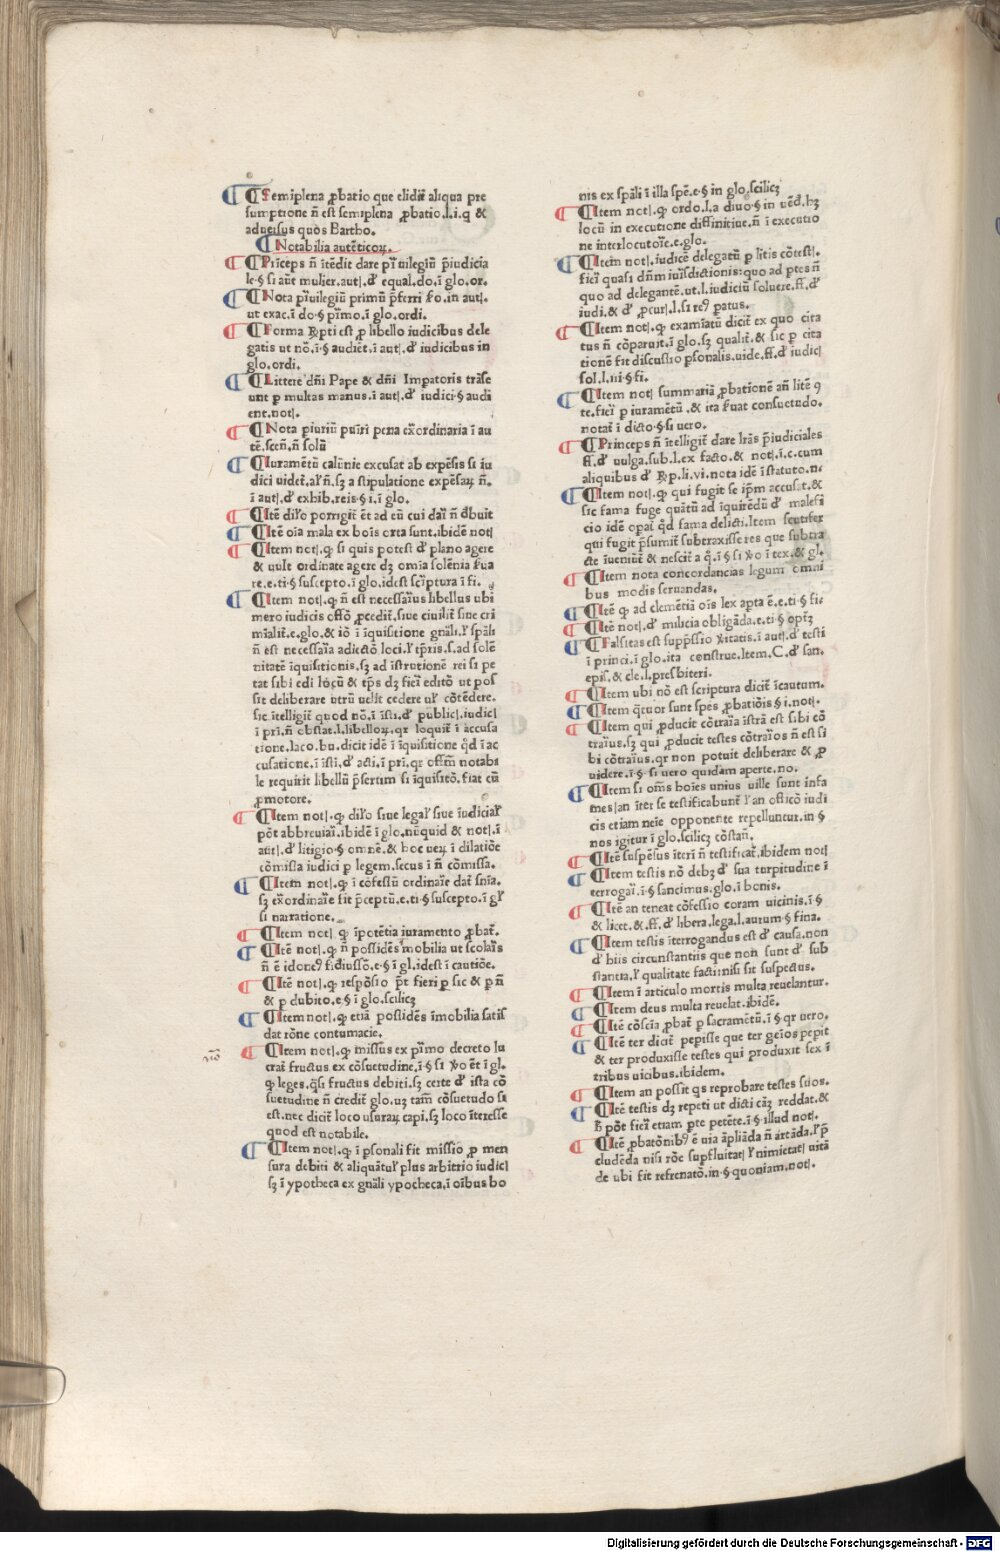 ¶ Semiplena ꝓbatio que elidit̄ aliqua pre
sumptione n̄ est semiplena ꝓbatio.l.i.q &
aduersus quos Bartho.
¶ Notabilia autēticoꝝ.
¶ Princeps n̄ ītēdit dare pͥuilegiū p̄iudicia
le·§ si aūt mulier.autͭ.đ equal.do.ī glo.or.
¶ Nota pͥuilegiū primū p̄ferri in autͭ.
ut exac.ī do·§ pͥmo.ī glo.ordi.
¶ Forma Rͤpti est ꝑ libello iudicibus dele
gatis ut nō.ī·§ audiēt.ī autͭ.đ iudicibus in
glo.ordi.
¶ Littere dn̄i Pape & dn̄i Impatoris trāse
unt p multas manus.ī autͭ.đ iudici·§ audi
ent.notͭ.
¶ Nota pena exͣordinaria ī au
tē.
¶ Iuramētū calūnie excusat ab expēsis si iu
dici uidet̄.al' n̄.sꝫ a stipulatione expēsaꝝ n̄.
ī autͭ.đ exhib.reis·§ i.ī glo.
¶ Itē porrigit̄ ēt ad eū cui dari n̄ đbuit
¶ Itē oīa mala ex boīs orta sunt.ibidē notͭ
¶ Item notͭ.ꝙ si quis potest đ plano agere
& uult ordinate agere dꝫ omīa solēnia s̄ua
re.e.ti·§ suscepto.ī glo.idest scͥptura ī fi.
¶ Item notͭ.ꝙ n̄ est necessarius libellus ubi
mero iudicis offō ꝓcedit̄.siue ciuilit̄ siue cri
mīalit̄.e.glo.& iō ī īquisitione gn̄ali.l' sp̄ali
n̄ est necessaria adiectō loci.l' tp̄ris.s.ad solē
nitatē īquisitionis.sꝫ ad īstrutionē rei si pe
tat sibi edi locū & tp̄s dꝫ fieri editō ut pos
sit deliberare utrū uelit cedere ul' cōtēdere.
sic ītelligit̄ quod nō.ī īsti.đ publicͭ.iudicͭ
ī pri.n̄ obstat.l.libelloꝝ.qr loquit̄ ī accusa
tione.Iaco.bu.dicit idē ī īquisitione qđ ī ac
cusatione.ī īsti.đ acti.ī pri.qr offm̄ notabi
le requirit libellū p̄sertim si īquisitō.fiat cū
ꝓmotore.
¶ Item notͭ.ꝙ siue legal' siue iudicial'
pōt abbreuiari.ibidē ī glo.nūquid & notͭ.ī
autͭ.đ litigio·§ omnē.& hoc ueꝝ ī dilatiōe
cōmissa iudici p legem.secus ī n̄ cōmissa.
¶ Item notͭ.ꝙ ī cōfessū ordinarie dat̄ sn̄ia.
sꝫ exͣordinarie fit p̄ceptū.e.ti·§ suscepto.ī gl'
si narratione.
¶ Item notͭ.ꝙ īpotētia iuramento ꝓbat̄.
¶ Itē notͭ.ꝙ n̄ possidēs īmobilia ut scolaris
n̄ ē idone9 fidiussō.e·§ ī gl.idest ī cautiōe.
¶ Itē notͭ.ꝙ resposio p̄t fieri p sic & p n̄
& p dubito.e·§ ī glo.scilicꝫ
¶ Item notͭ.ꝙ etiā possidēs īmobilia satis
dat rōne contumacie.
¶ Item notͭ.ꝙ missus ex pͥmo decreto lu
crat̄ fructus ex cōsuetudine.ī·§ si ēt ī gl.
ꝙ leges.qͣsi fructus debiti.sꝫ certe đ ista cō
suetudine n̄ credit̄ glo.uꝫ tam̄ cōsuetudo si
est.nec dicit̄ loco usuraꝝ capi.sꝫ loco īteresse
quod est notabile.
¶ Item notͭ.ꝙ ī psonali fit missio ꝓ men
sura debiti & aliquāt̄l' plus arbitrio iudicͭ
sꝫ ī ypotheca ex gn̄ali ypotheca.ī oībus bo
nis ex sp̄ali ī illa spē.e·§ in glo.scilicꝫ
¶ Item notͭ.ꝙ ordo.l.a diuo·§ in uēđ.hꝫ
locū in executione diffinitiue.n̄ ī executio
ne interlocutoͥe.e.glo.
¶ Item notͭ.iudicē delegatū p litis cōtestͭ.
fieri quasi dn̄m iurisdictionis:quo ad ptes n̄
quo ad delegantē.ut.l.iudiciū soluere.ff.đ
iudi.& đ ꝓcurͭ.l.si re9 patus.
¶ Item notͭ.ꝙ examīatū dicit̄ ex quo cita
tus n̄ cōparuit.ī glo.sꝫ qualit̄.& sic p cita
tionē fit discussio psonalis.uide.ff.đ iudicͭ
sol.l.iii·§ fi.
¶ Item notͭ summariā ꝓbationē an̄ litē 9
te.fieri p iuramētū.& ita s̄uat consuetudo.
notat̄ ī dicto·§ si uero.
¶ Princeps n̄ ītelligit̄ dare lr̄as p̄iudiciales
ff.đ uulga.sub.l.ex facto.& notͭ.ī.c.cum
aliquibus đ Rͤp.li.vi.nota idē ī statuto.n̄
¶ Item notͭ.ꝙ qui fugit se ip̄m accusat.&
sic fama fuge quātū ad īquirēdū đ malefi
cio idē opat̄ qđ fama delicti.Item scutifer
qui fugit p̄sumit̄ subtraxisse res que subtra
cte īueniūt̄ & nescit̄ a q̊.ī·§ si ī tex.& gl.
¶ Item nota concordancias legum omni
bus modis seruandas.
¶ Itē ꝙ ad clemētiā oīs lex apta ē.e.ti·§ fi.
¶ Itē notͭ.đ milicia obligāda.e.ti·§ optꝫ
¶ Falsitas est supp̄ssio ueritatis.ī autͭ.đ testi
ī princi.ī glo.ita construe.Item.C.đ san.
epis̄.& cle.l.presbiteri.
¶ Item ubi nō est scriptura dicit̄ īcautum.
¶ Item qͣtuor sunt spēs ꝓbatiōis § i.notͭ.
¶ Item qui ꝓducit cōtraria īstra est sibi cō
trarius.sꝫ qui ꝓducit testes cōtrarios n̄ est si
bi cōtrarius.qr non potuit deliberare & ꝓ
uidere.ī·§·si uero quidam aperte.no.
¶ Item si om̄s hoīes unius uille sunt infa
mes an īter se testificabunt̄ l' an iudi
cis etiam opponente repelluntur.in §
nos igitur ī glo.scilicꝫ cōstan̄.
¶ Itē suspēsus īterī n̄ testificat̄.ibidem notͭ
¶ Item testis nō debꝫ đ sua turpitudine ī
terrogari.ī·§ sancimus.glo.ī bonis.
¶ Itē an teneat cōfessio coram uicinis.ī·§
& licet.&.ff.đ libera.lega.l.aurum·§ fina.
¶ Item testis īterrogandus est đ causa.non
đ hiis circunstantiis que non sunt đ sub
stantia.l' qualitate facti:nisi sit suspectus.
¶ Item ī articulo mortis multa reuelantur.
¶ Item deus multa reuelat.ibidē.
¶ Itē cōscīa ꝓbat̄ p sacramētū.ī·§ qr uero.
¶ Itē ter dicit̄ pepisse que ter geīos pepit
& ter produxisse testes qui produxit sex ī
tribus uicibus.ibidem.
¶ Item an possit qs reprobare testes suos.
¶ Itē testis dꝫ repeti ut dicti cāꝫ reddat.&
ħ pōt fieri etiam pte petēte.ī·§ illud notͭ.
¶ Itē ꝓbatōnib9 ē uia āpliāda n̄ artāda.l' p̄
cludēda nisi rōe supfluitatͭ l' nimietatͭ uitā
de ubi fit refrenatō.in·§ quoniam.notͭ.
Digitalisierung gefördert durch die Deutsche Forschungsgemeinschaft - DFG